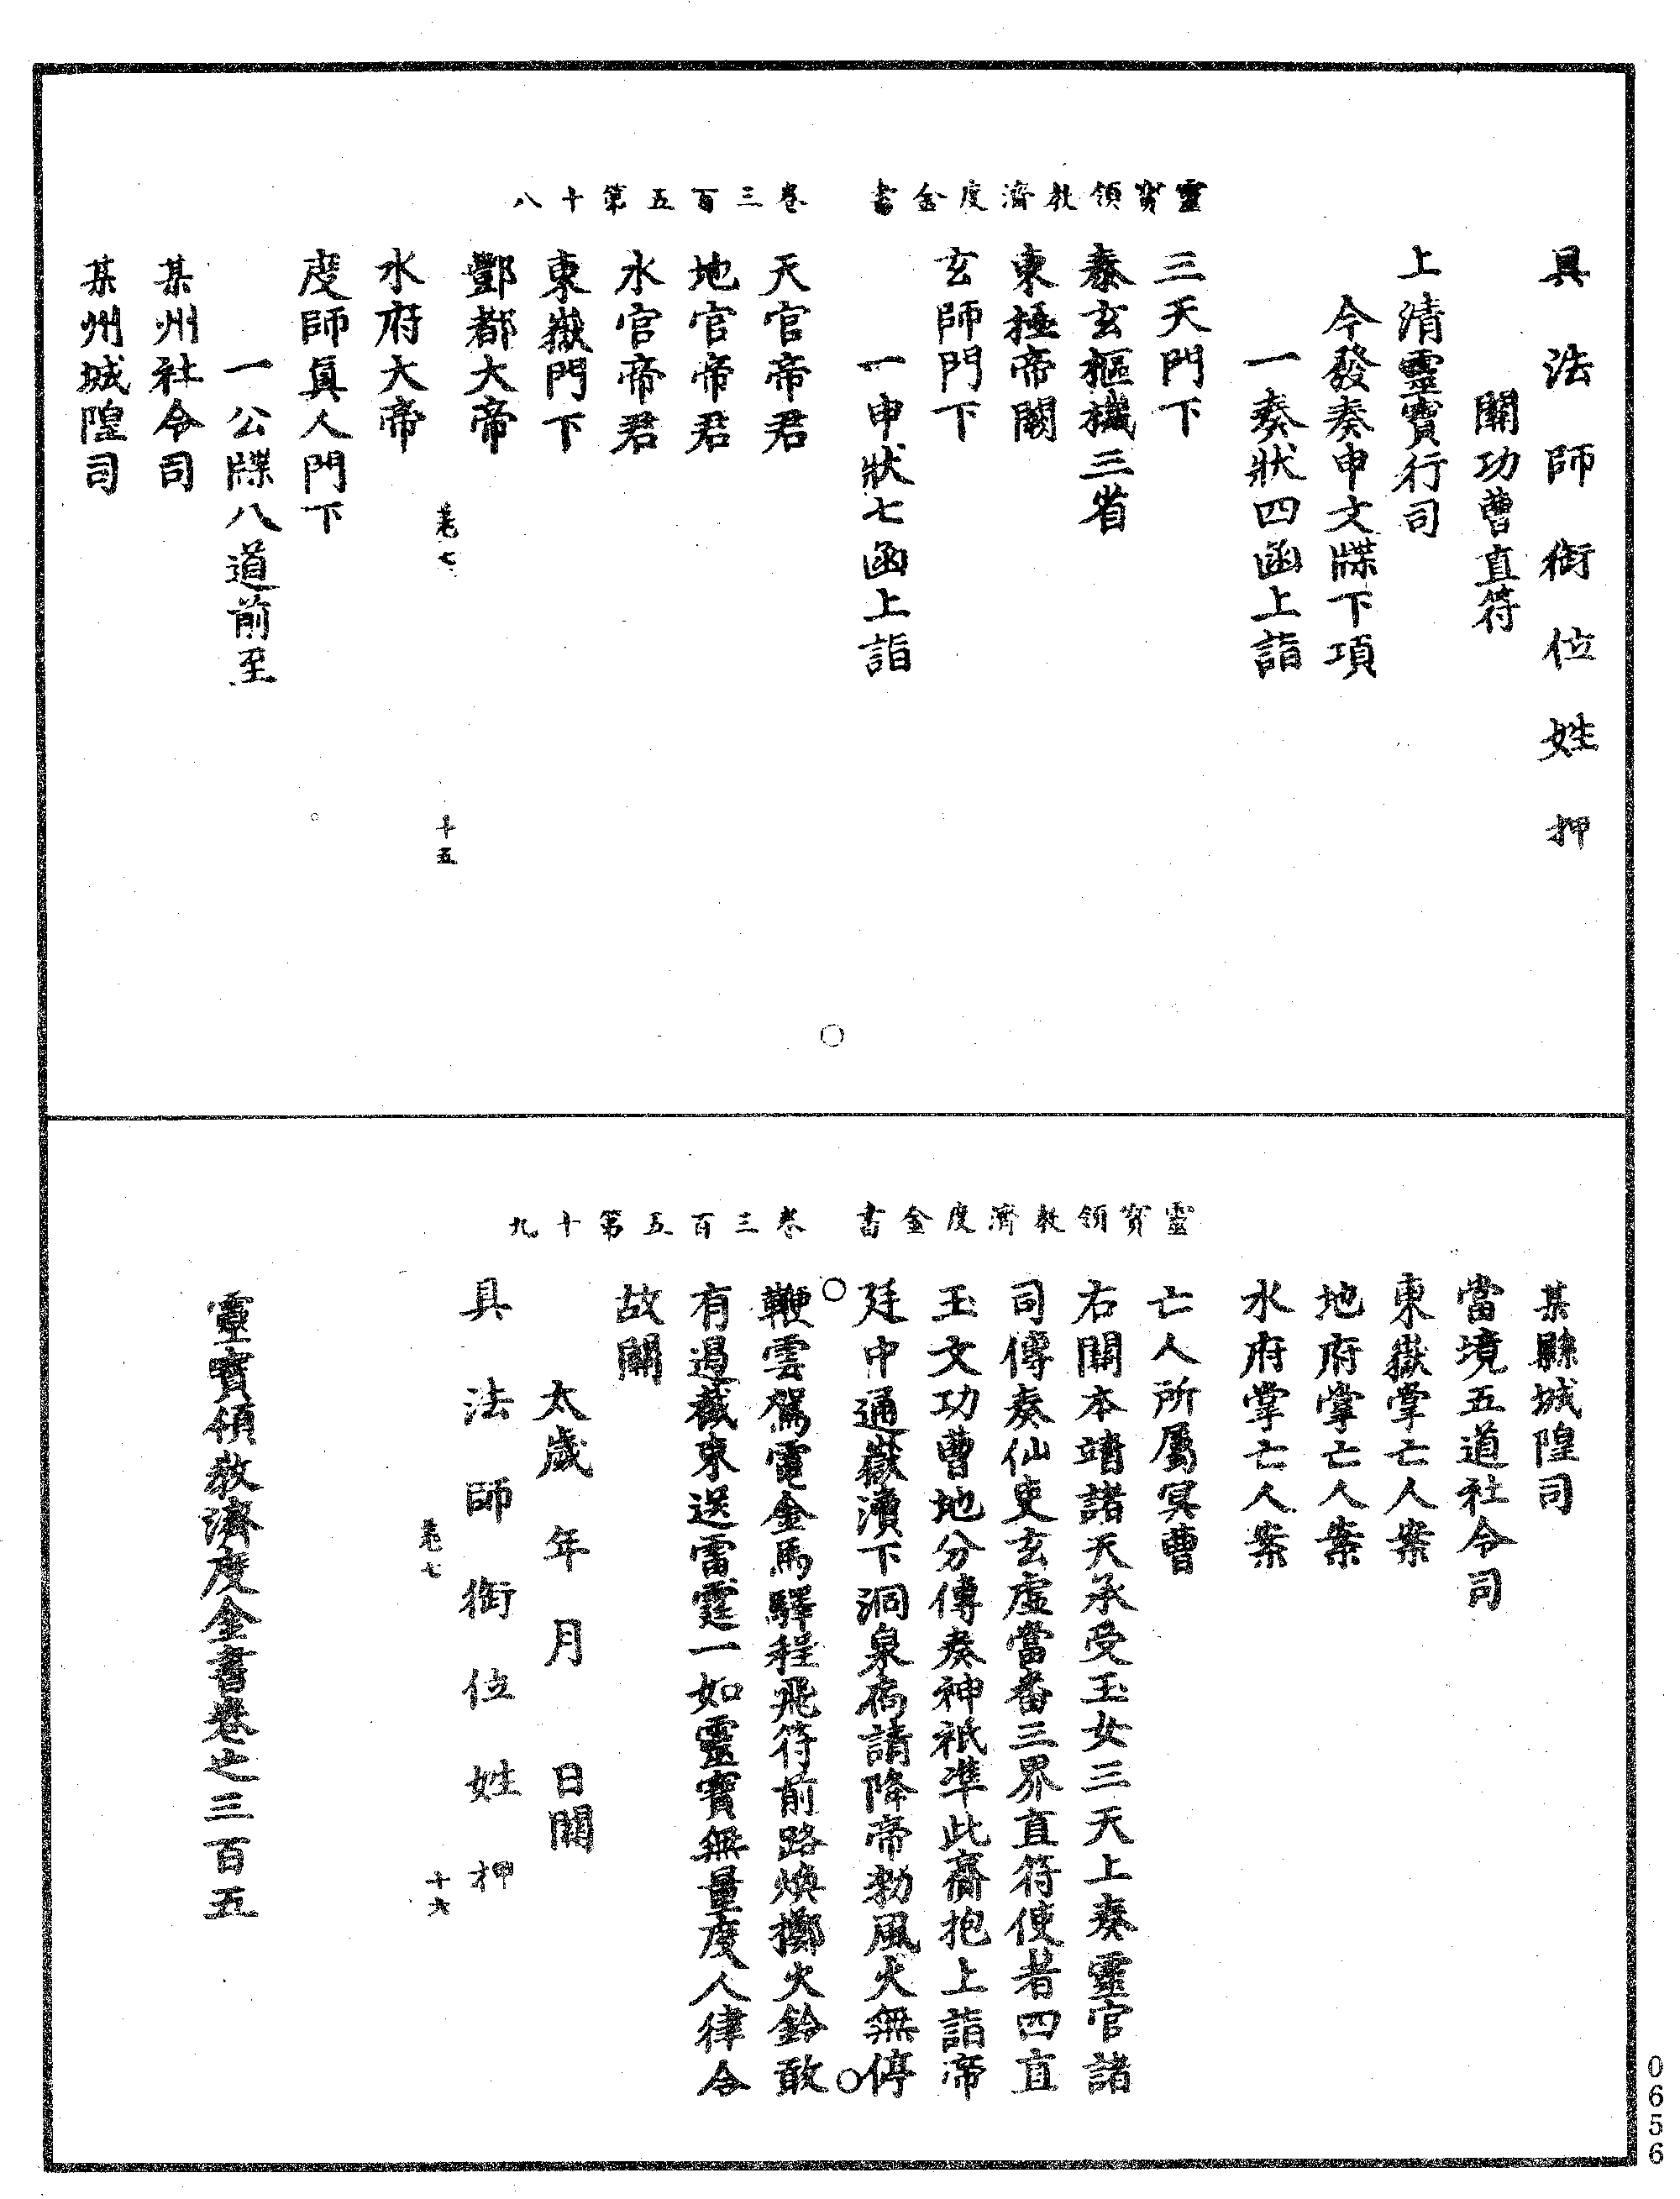 靈寶領教濟度金書　卷三百五第十八
具法師銜位姓押
關功曹直符
上清靈寶行司
今發奏申文牒下項
一奏狀四函上詣
三天門下
泰玄樞機三省
東極帝闕
玄師門下
一申狀七函上詣
天官帝君
地官帝君
水官帝君
東嶽門下
酆都大帝
卷七　十五
水府大帝
度師真人門下
一公牒八道前至
某州社令司
某州城隍司
靈寶領教濟度金書　卷三百五第十九
某縣城隍司
當境五道社令司
東嶽掌亡人案
地府掌亡人案
水府掌亡人案
亡人所屬冥曹
右關本靖諸天承受玉女三天上奏靈官諸
司傳奏仙吏玄虛當番三界直符使者四直
玉文功曹地分傳奏神祇準此齋抱上詣帝
廷中通嶽瀆下洞泉扃請降帝勑風火無停
鞭雲駕電金馬驛程飛符前路煥擲火鈴敢
有遏截束送雷霆一如靈寶無量度人律令
故關
太歲年月日關
具法師銜位姓押
卷七　十六
靈寶領教濟度金書卷之三百五
0656